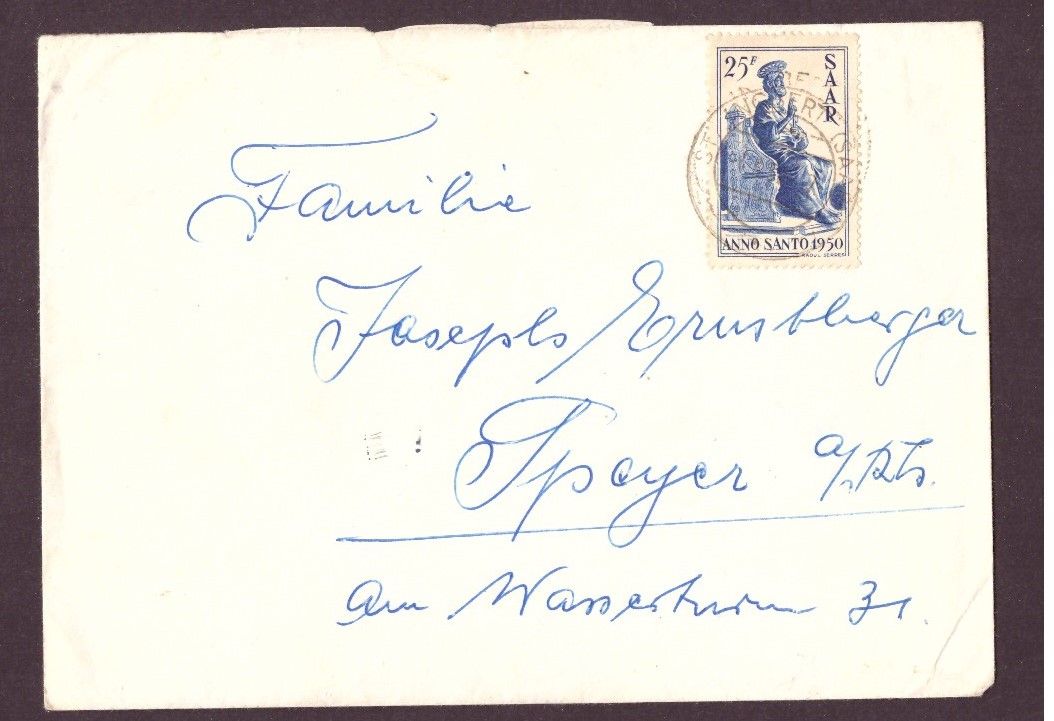 25F
SAAR
ST. INGBERT (SAAR)
ANNO SANTO 1950
RAOUL SERRES
Familie
Josephs Ernstberger
Speyer a/Rh.
Am Wasserturm 31.